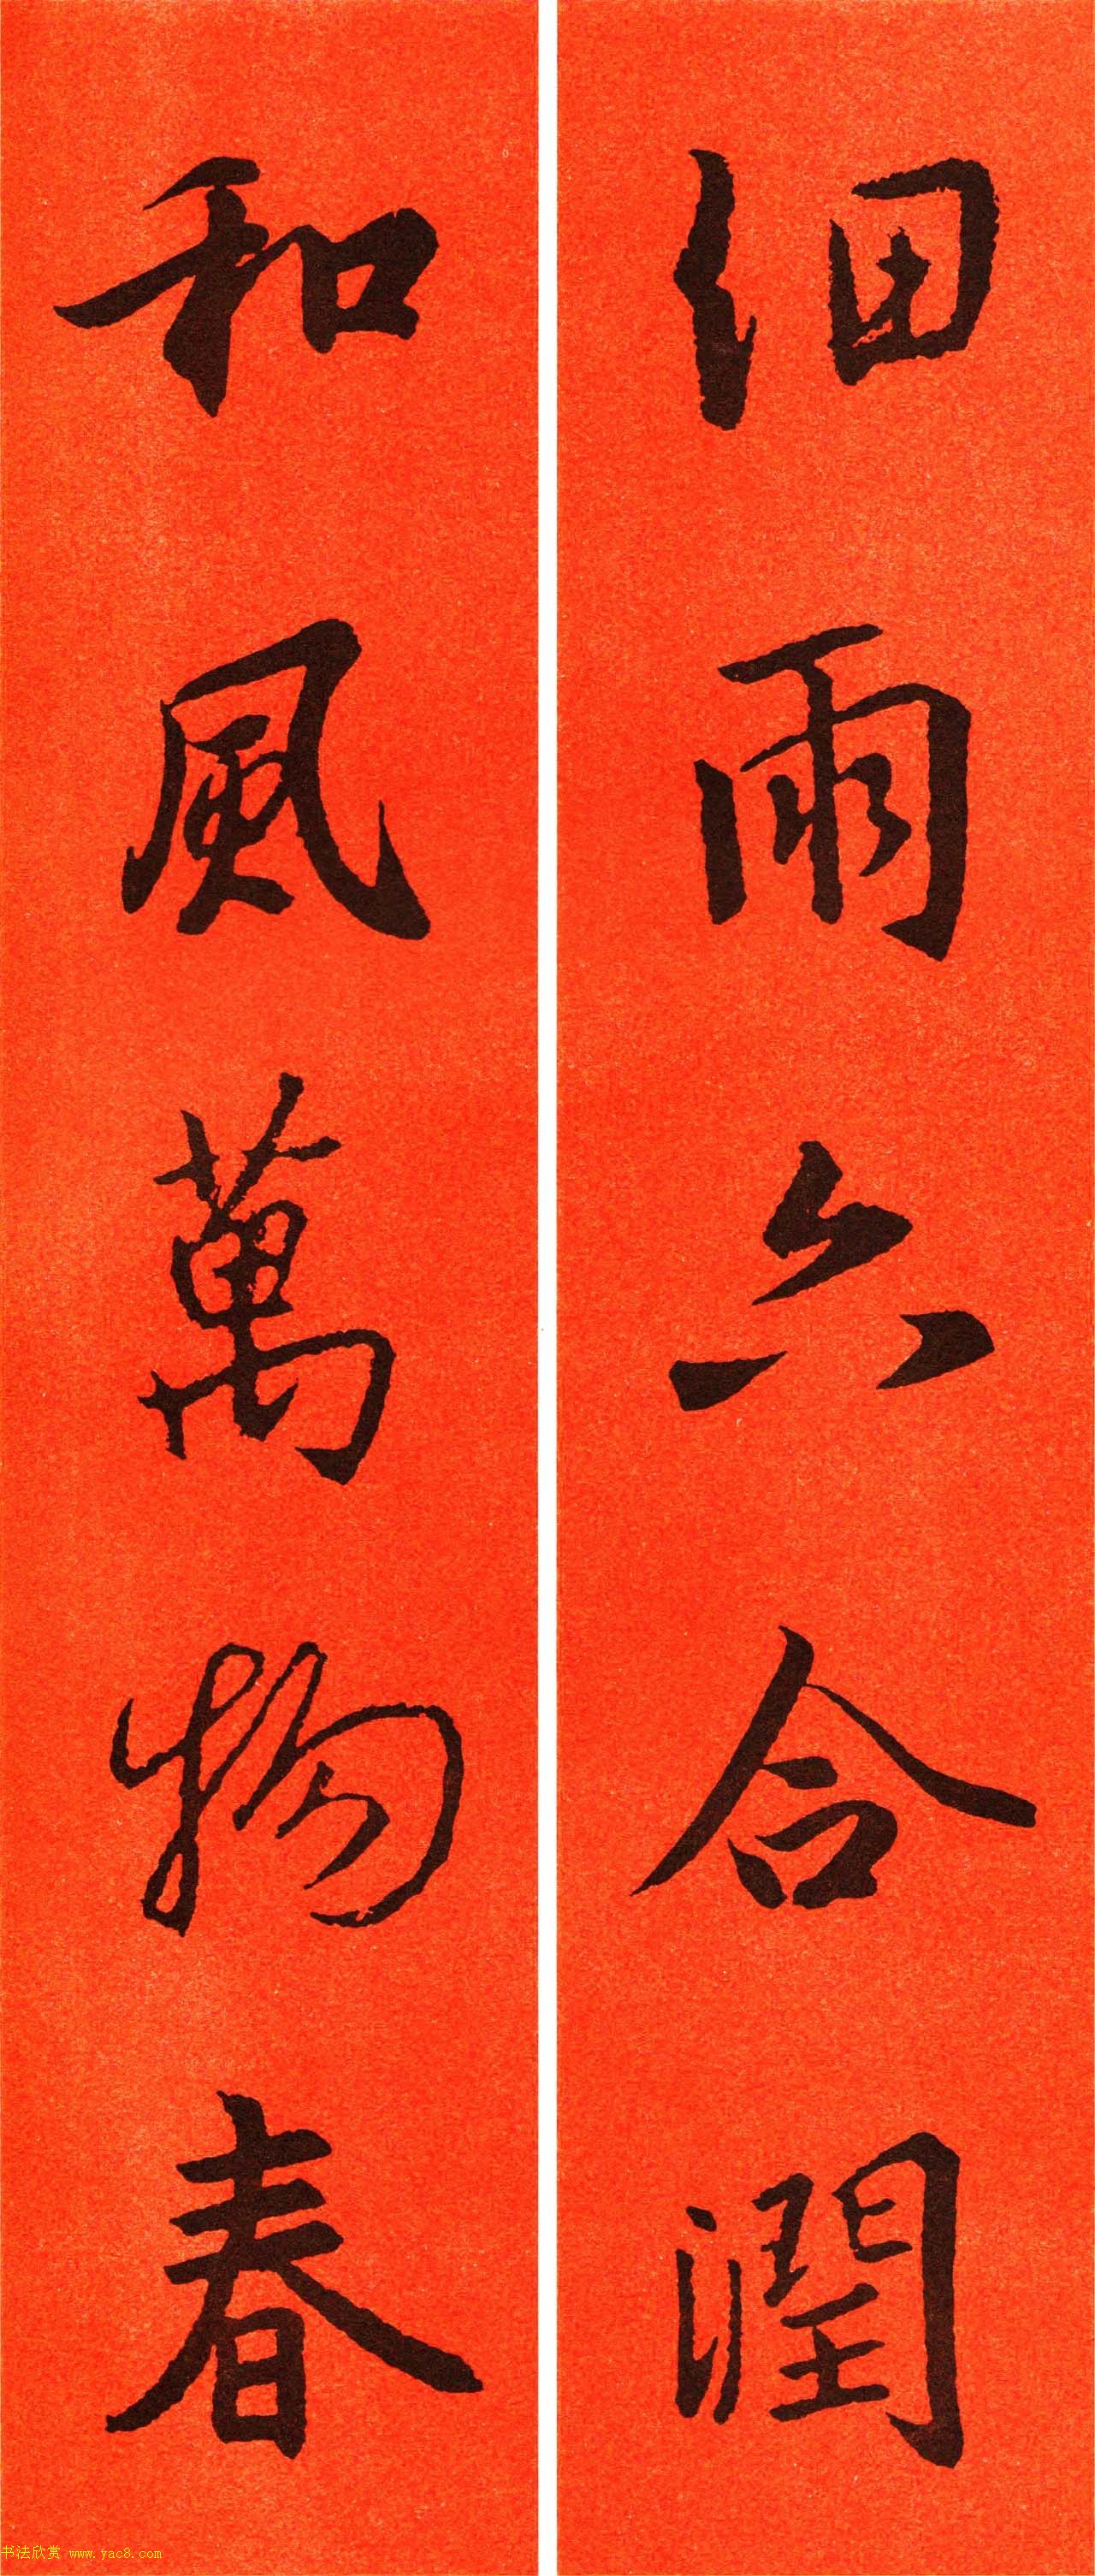 细雨六合潤
和風萬物春
书法欣赏 www.yac8.com